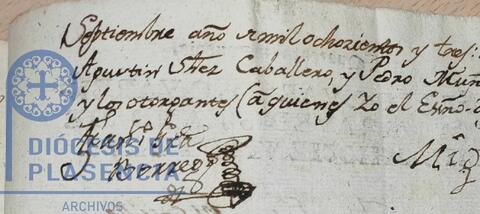 Septiembre año de mil ochozientos y tres:
Agustin Shez Caballero, y Pedro Muñ
y los otorgantes (a quienes Yo el Essno
Borreg
DIÓCESIS DE
PLASENCIA
ARCHIVOS